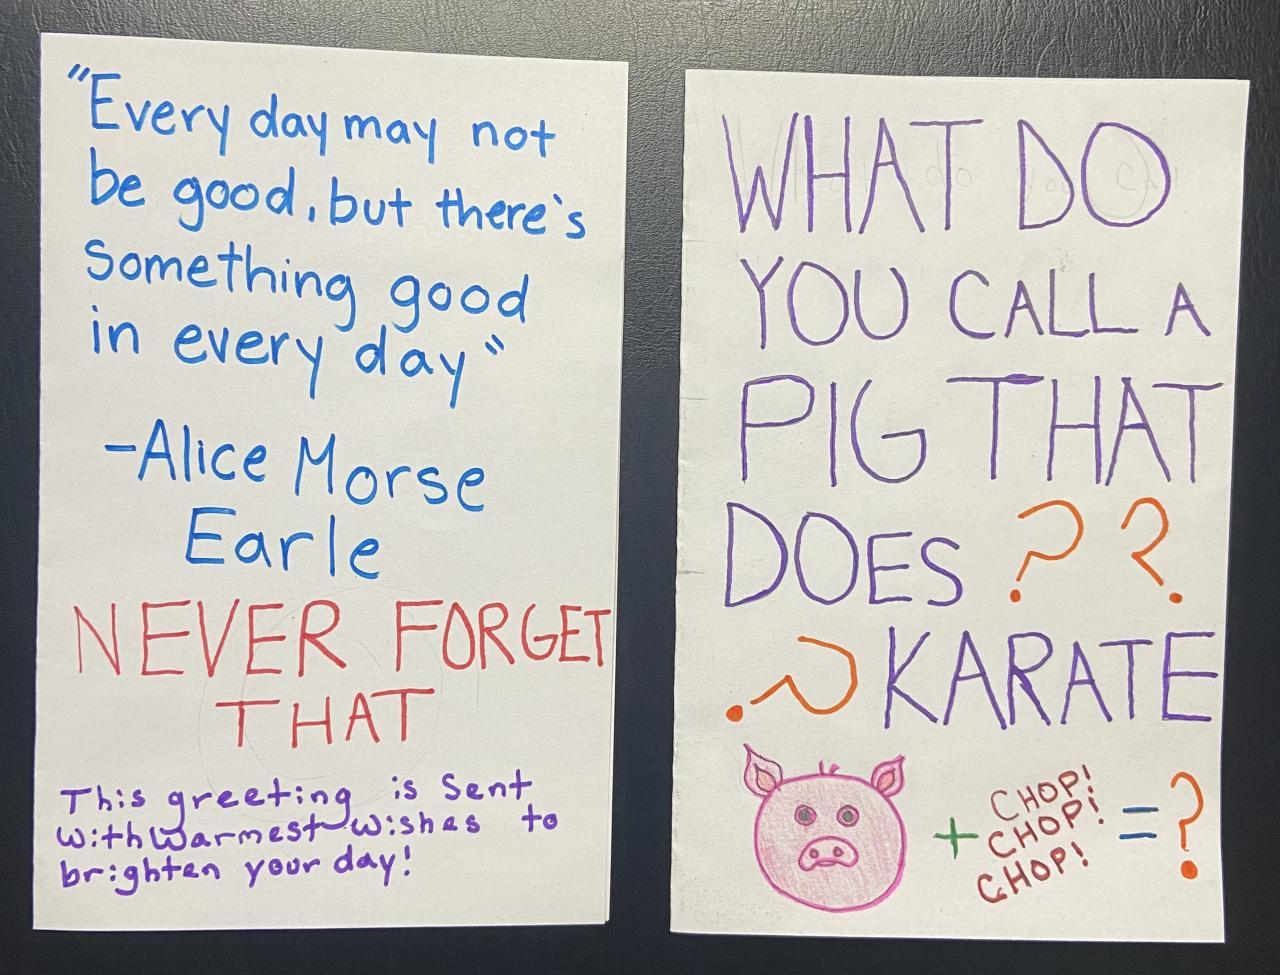 "Every day may not
be good, but there's
something good
in every day"
-Alice Morse
Earle
NEVER FORGET
THAT
This greeting is sent
with warmest wishes to
brighten your day!
WHAT DO
YOU CALL A
PIG THAT
DOES ??
? KARATE
+ CHOP! = ?
CHOP!
CHOP!